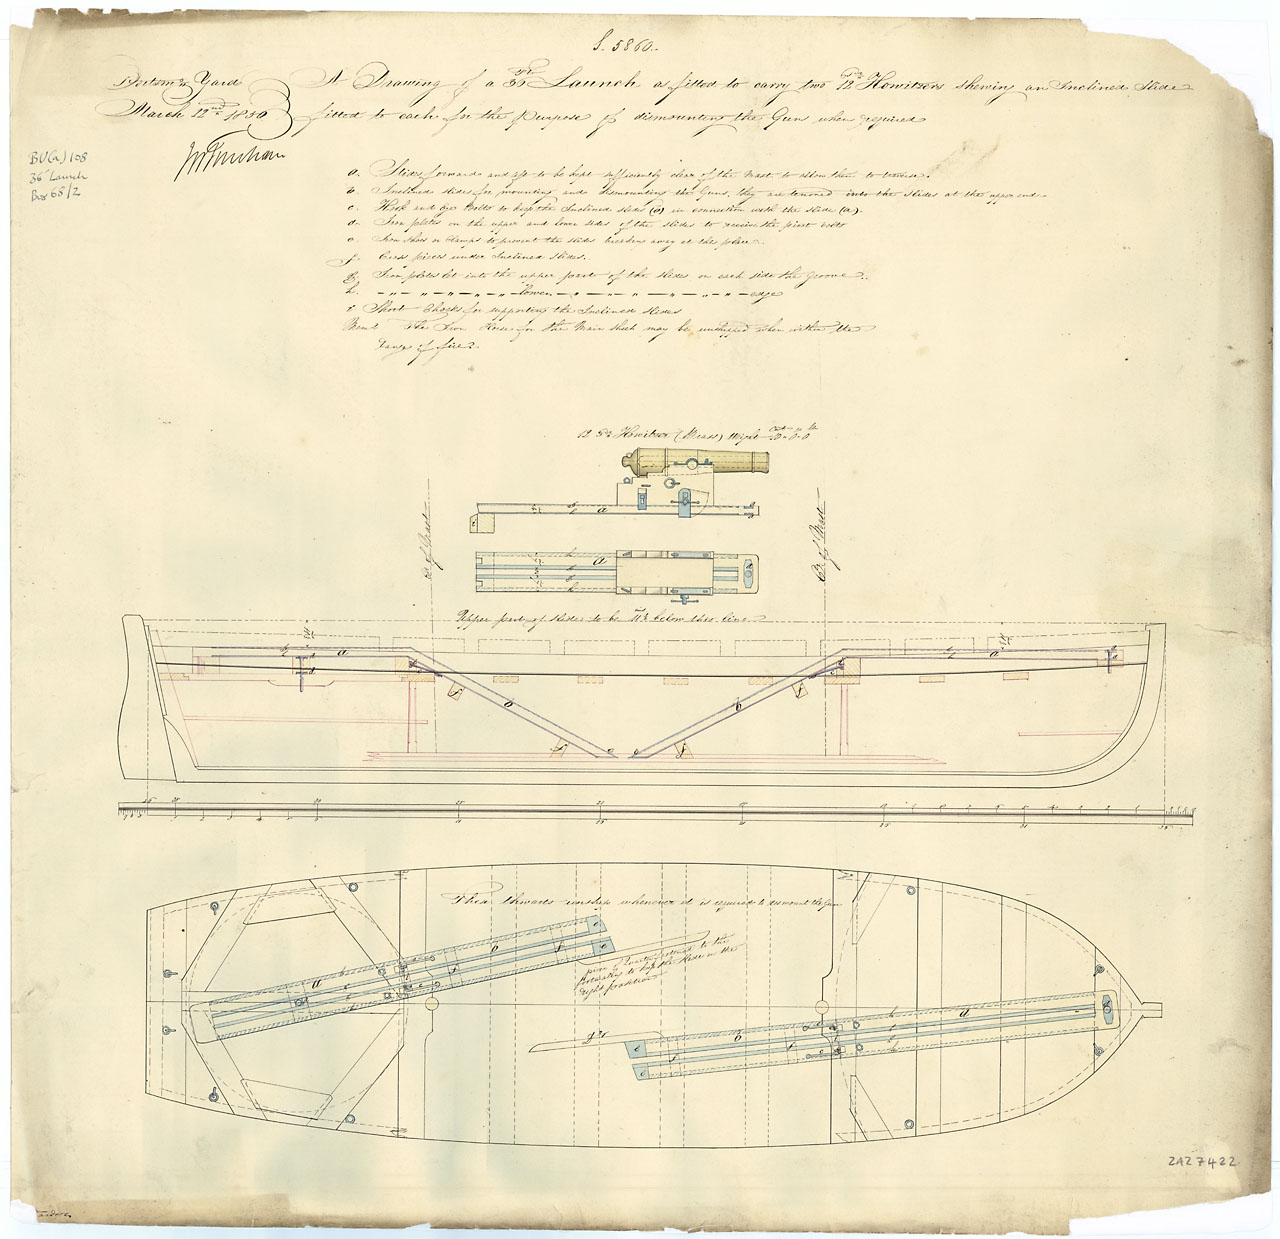 S. 5860.
Portsmo Yard
March 12nd 1830
A Drawing of a 36 ft Launch as fitted to carry two 12 Pr Howitzers shewing an Inclined Slide
fitted to each for the purpose of dismounting the Guns when required
BU(a)108
36' Launch
Box 68/2
a. Slides forward and aft to be kept sufficiently clear of the Mast to allow them to traverse.
b. Inclined slides for mounting and dismounting the Guns, they are tenoned into the slides at the upper end.
c. Hook and Eye Bolts to keep the Inclined slides (b) in connection with the slide (a).
d. Iron plates on the upper and lower sides of the slides to receive the pivot bolts
e. Iron shoes or Clamps to prevent the slides breaking away at this place.
f. Cross pieces under Inclined Slides.
g. Iron plates let into the upper part of the slides on each side the Groove.
h. " " " " " " lower " " " " " " edge
i Short Chocks for supporting the Inclined Slides
The Iron Horse for the Main sheet may be unshipped when within the
range of fire.
12 Pr Howitzer (Brass) Weight 10-0-0
a
a
of Mast
of Mast
Upper part of slides to be 11½ below this line.
a
a
b
b
f
f
f
f
e
e
These thwarts unship whenever it is required to dismount the Gun
to the
to keep the slide in the
right position
a
b
f
f
e
e
b
a
e
e
2A27422